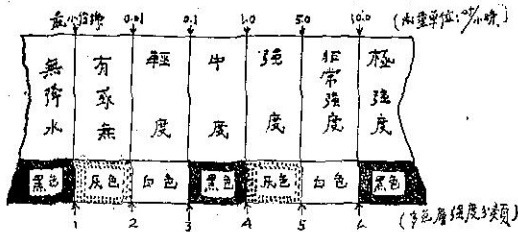 最小信號 0.01 0.1 1.0 5.0 10.0 (雨量單位:吋/小時)
無降水 有似無 輕度 中度 強度 非常強度 極強度
黑色 灰色 白色 黑色 灰色 白色 黑色
1 2 3 4 5 6 (多色層強度分類)